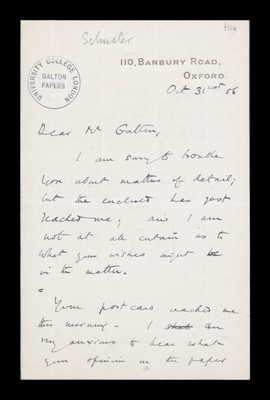 Schuster
UNIVERSITY COLLEGE LONDON
GALTON
PAPERS
110, BANBURY ROAD,
OXFORD.
Oct 31st 06
Dear Mr Galton,
I am sorry to trouble
you about matters of detail;
but the enclosed has just
reached me; and I am
not at all certain as to
what your wishes might be
in the matter.
Your postcard reached me
this morning. I am
very anxious to hear what
your opinion on the paper